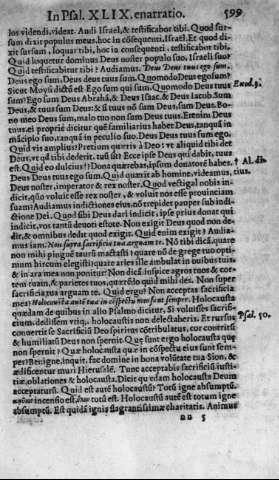 In Psal. XLIX. enarratio. 599
los videndi, videat. Audi Israel, & testificabor tibi. Quod sur-
sum dixit populus meus, hoc in consequenti, Israel. Et quod di-
xit sursum, loquar tibi, hoc in consequenti, testificabor tibi.
Quid loquetur dominus Deus noster populo suo, Israeli suo?
Quid testificabitur tibi? Audiamus. Deus Deus tuus ego sum.
Deus ego sum, Deus deus tuus sum. Quomodo Deus ego sum?
Sicut Moysi dictũ est Ego sum qui sum. Quomodo Deus tuus Exod. 3.
sum? Ego sum Deus Abrahã, & Deus Isaac, & Deus Iacob. Sum
Deus, & tuus sum Deus: & si tuus nõ sum Deus, sum Deus. Bo-
no meo Deus sum, malo tuo non sum Deus tuus.
ctus ei proprie dicitur quẽ familiarius habet Deus, tanquã in
mãcipio suo, tanquã in peculio suo. Deus Deus tuus sum ego.
Quid vis amplius? Pretium quæris à Deo: vt aliquid tibi det
Deus, vt qd tibi dederit, tuũ sit? Ecce ipse Deus qui dabit, tuus
est. Quid eo dulcius? Dona quærebas, ipsum donatorẽ habes. † † Al. di-
Deus Deus tuus ego sum. Quid quærit ab homine, videamus, tius.
Deus noster, imperator & rex noster. Quod vectigal nobis in-
dicit, quo voluit esse rex noster, & voluit nos esse prouinciam
suam? Audiamus indictionem eius, nõ trepidet pauper sub indi-
ctione Dei. Quod sibi Deus dari indicit, ipse prius donat qui
indicit, vos tantũ deuoti estote. Non exigit Deus quod non de-
dit, & omnibus dedit quod exigit. Quid enim exigit? Audia-
mus iam. Non supra sacrificia tua arguam te. Nõ tibi dicã, quare
non mihi pinguẽ taurũ mactasti: quare nõ de grege tuo opti-
mum hircum elegisti: quare aries ille ambulat in ouibus tuis,
& in ara mea non ponitur? Non dicã, inspice agros tuos & cor-
tem tuam, & parietes tuos, quærẽdo quid mihi des. Non super
sacrificia tua arguam te. Quid ergo? Non acceptas sacrificia
mea? Holocausta autẽ tua in cõspectu meo sunt semper. Holocausta
quædam de quibus in alio Psalmo dicitur, Si voluisses sacrifi- Psal. 50.
cium, dedissem vtiq;, holocaustis non delectaberis. Et rursus
conuertit se Sacrificiũ Deo spiritus cõtribulatus, cor contritũ
& humiliatũ Deus non spernit. Que sunt ergo holocausta quę
non spernit? Quæ holocausta quæ in cõspectu eius sunt sem-
per? Benigne, inquit, fac domine in bona volũtate tua Sion, &
ædificentur muri Hierusalẽ. Tunc acceptabis sacrificiũ iusti-
tiæ, oblationes & holocausta. Dicit quædam holocausta Deum
acceptaturũ. Quid est autẽ holocaustũ? Totũ igne absumptũ.
incensio est, totũ est. Holocaustũ autẽ est totum igne
absumptũ. Est quidã ignis flagrantissimæ charitatis. Animus
DD 5